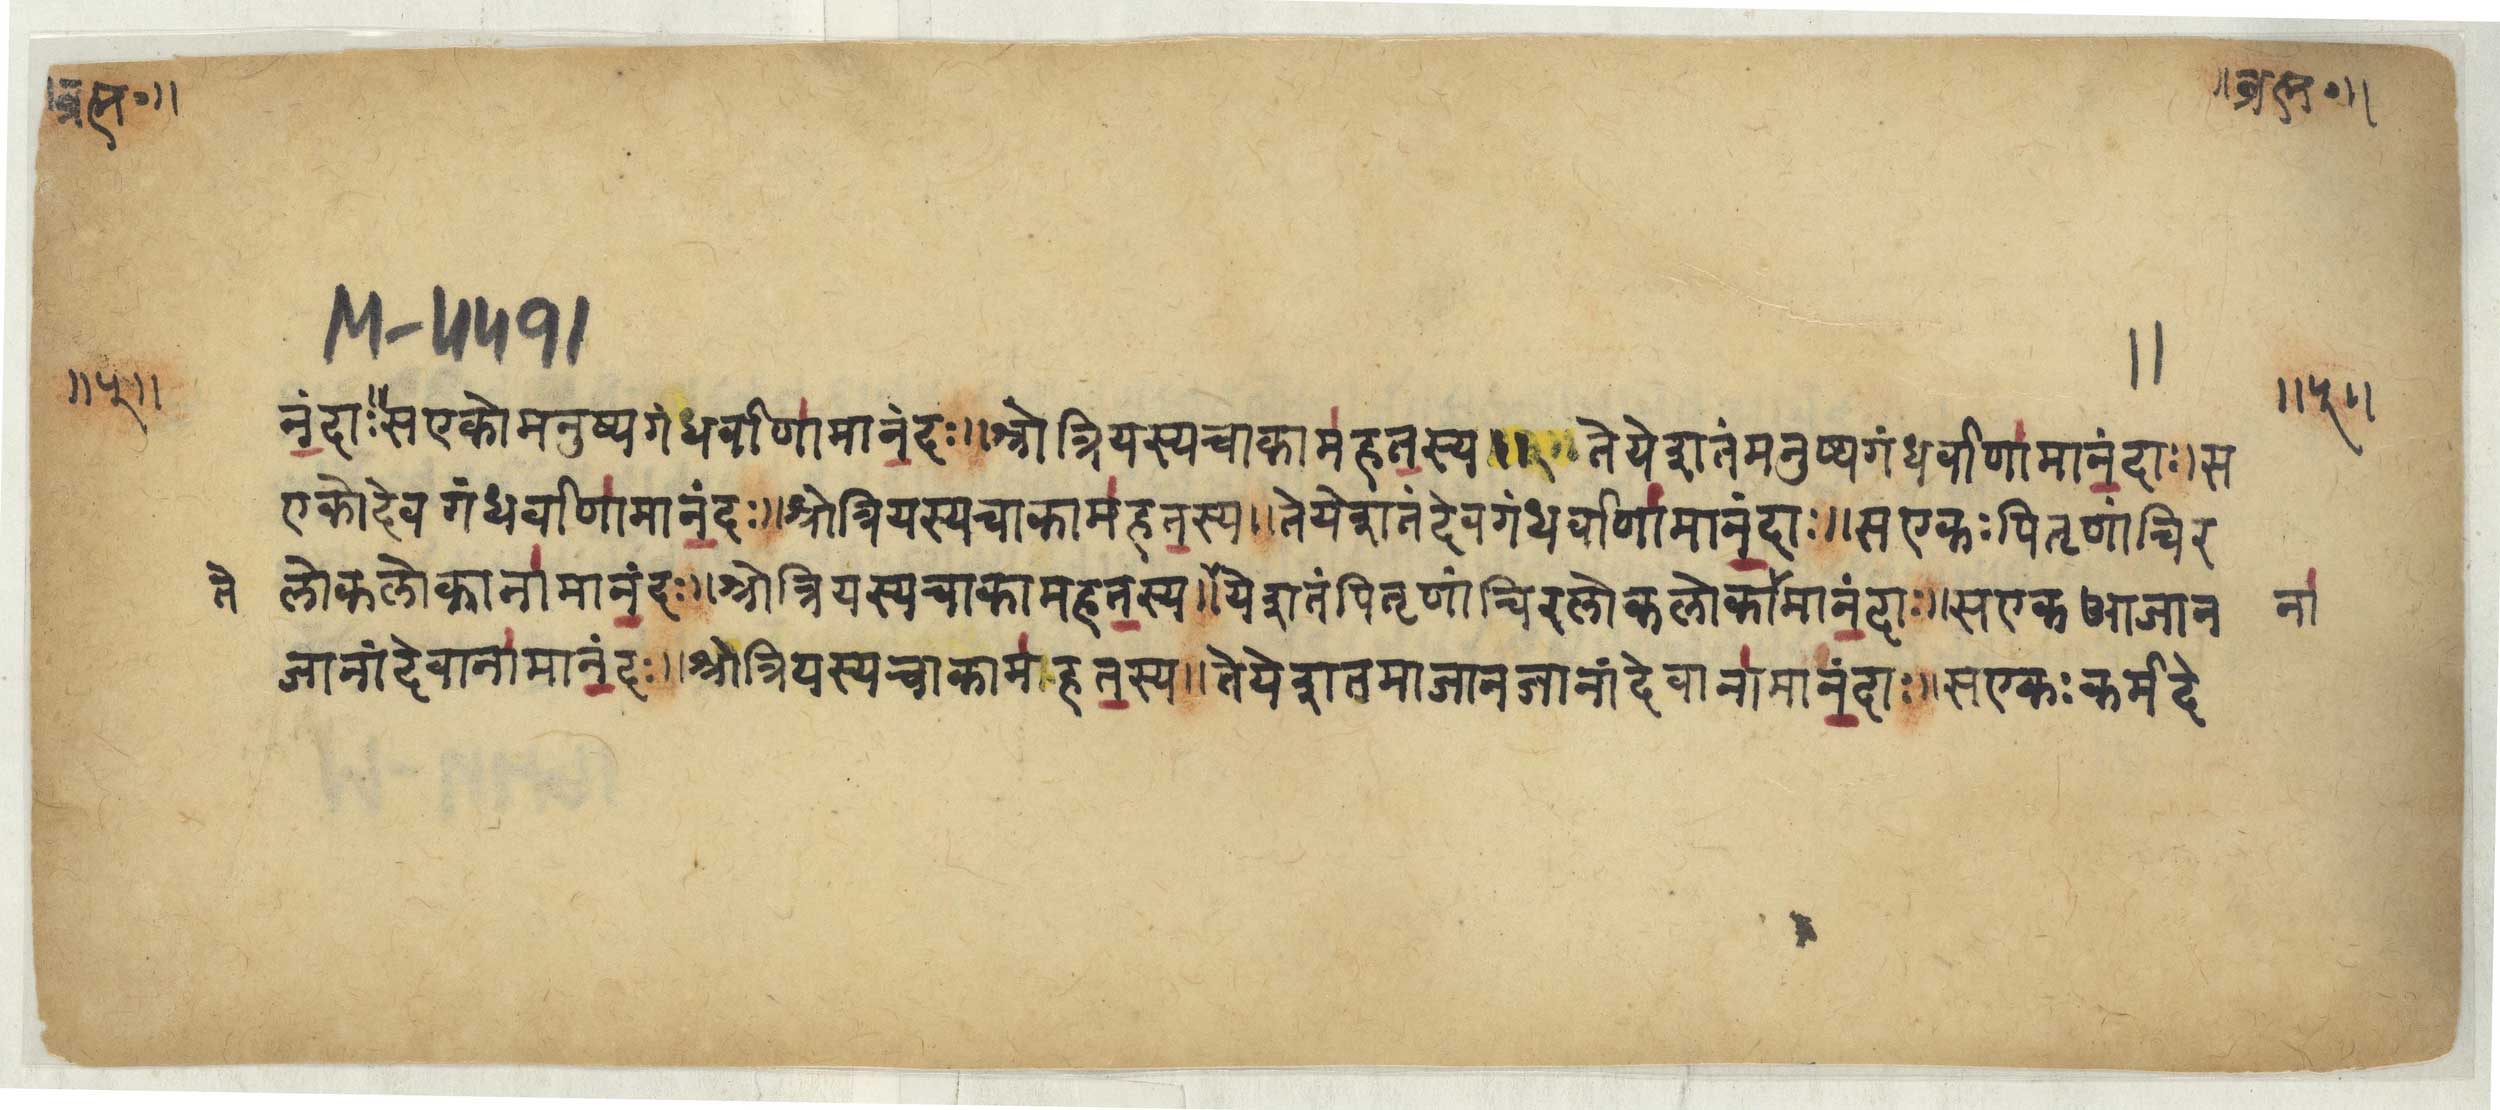 ॥ब्रह्म॰॥ ॥ब्रह्म॰॥
M-४५९१ ॥
॥५॥ ॥५॥
नं॒दाः॥स एको मनुष्यगंधर्वाणा॑मानं॒दः॥श्रोत्रियस्य चाकाम॑हत॒स्य॥२॥ते ये शतं मनुष्यगंधर्वाणा॑मानं॒दाः॥स
एको देवगंधर्वाणा॑मानं॒दः॥श्रोत्रियस्य चाकाम॑हत॒स्य॥ते ये शतं देवगंधर्वाणा॑मानं॒दाः॥स एकः पितृणां चिर
लोकलोकाना॑मानं॒दः॥श्रोत्रियस्य चाकामहत॒स्य॥ये शतं पितृणां चिरलोकलोकामानं॒दाः॥स एक आजान
ते ना॑
जानां देवाना॑मानं॒दः॥श्रोत्रियस्य चाकामा॑हत॒स्य॥ते ये शतमाजानजानां देवाना॑मानं॒दाः॥स एकः कर्मदे